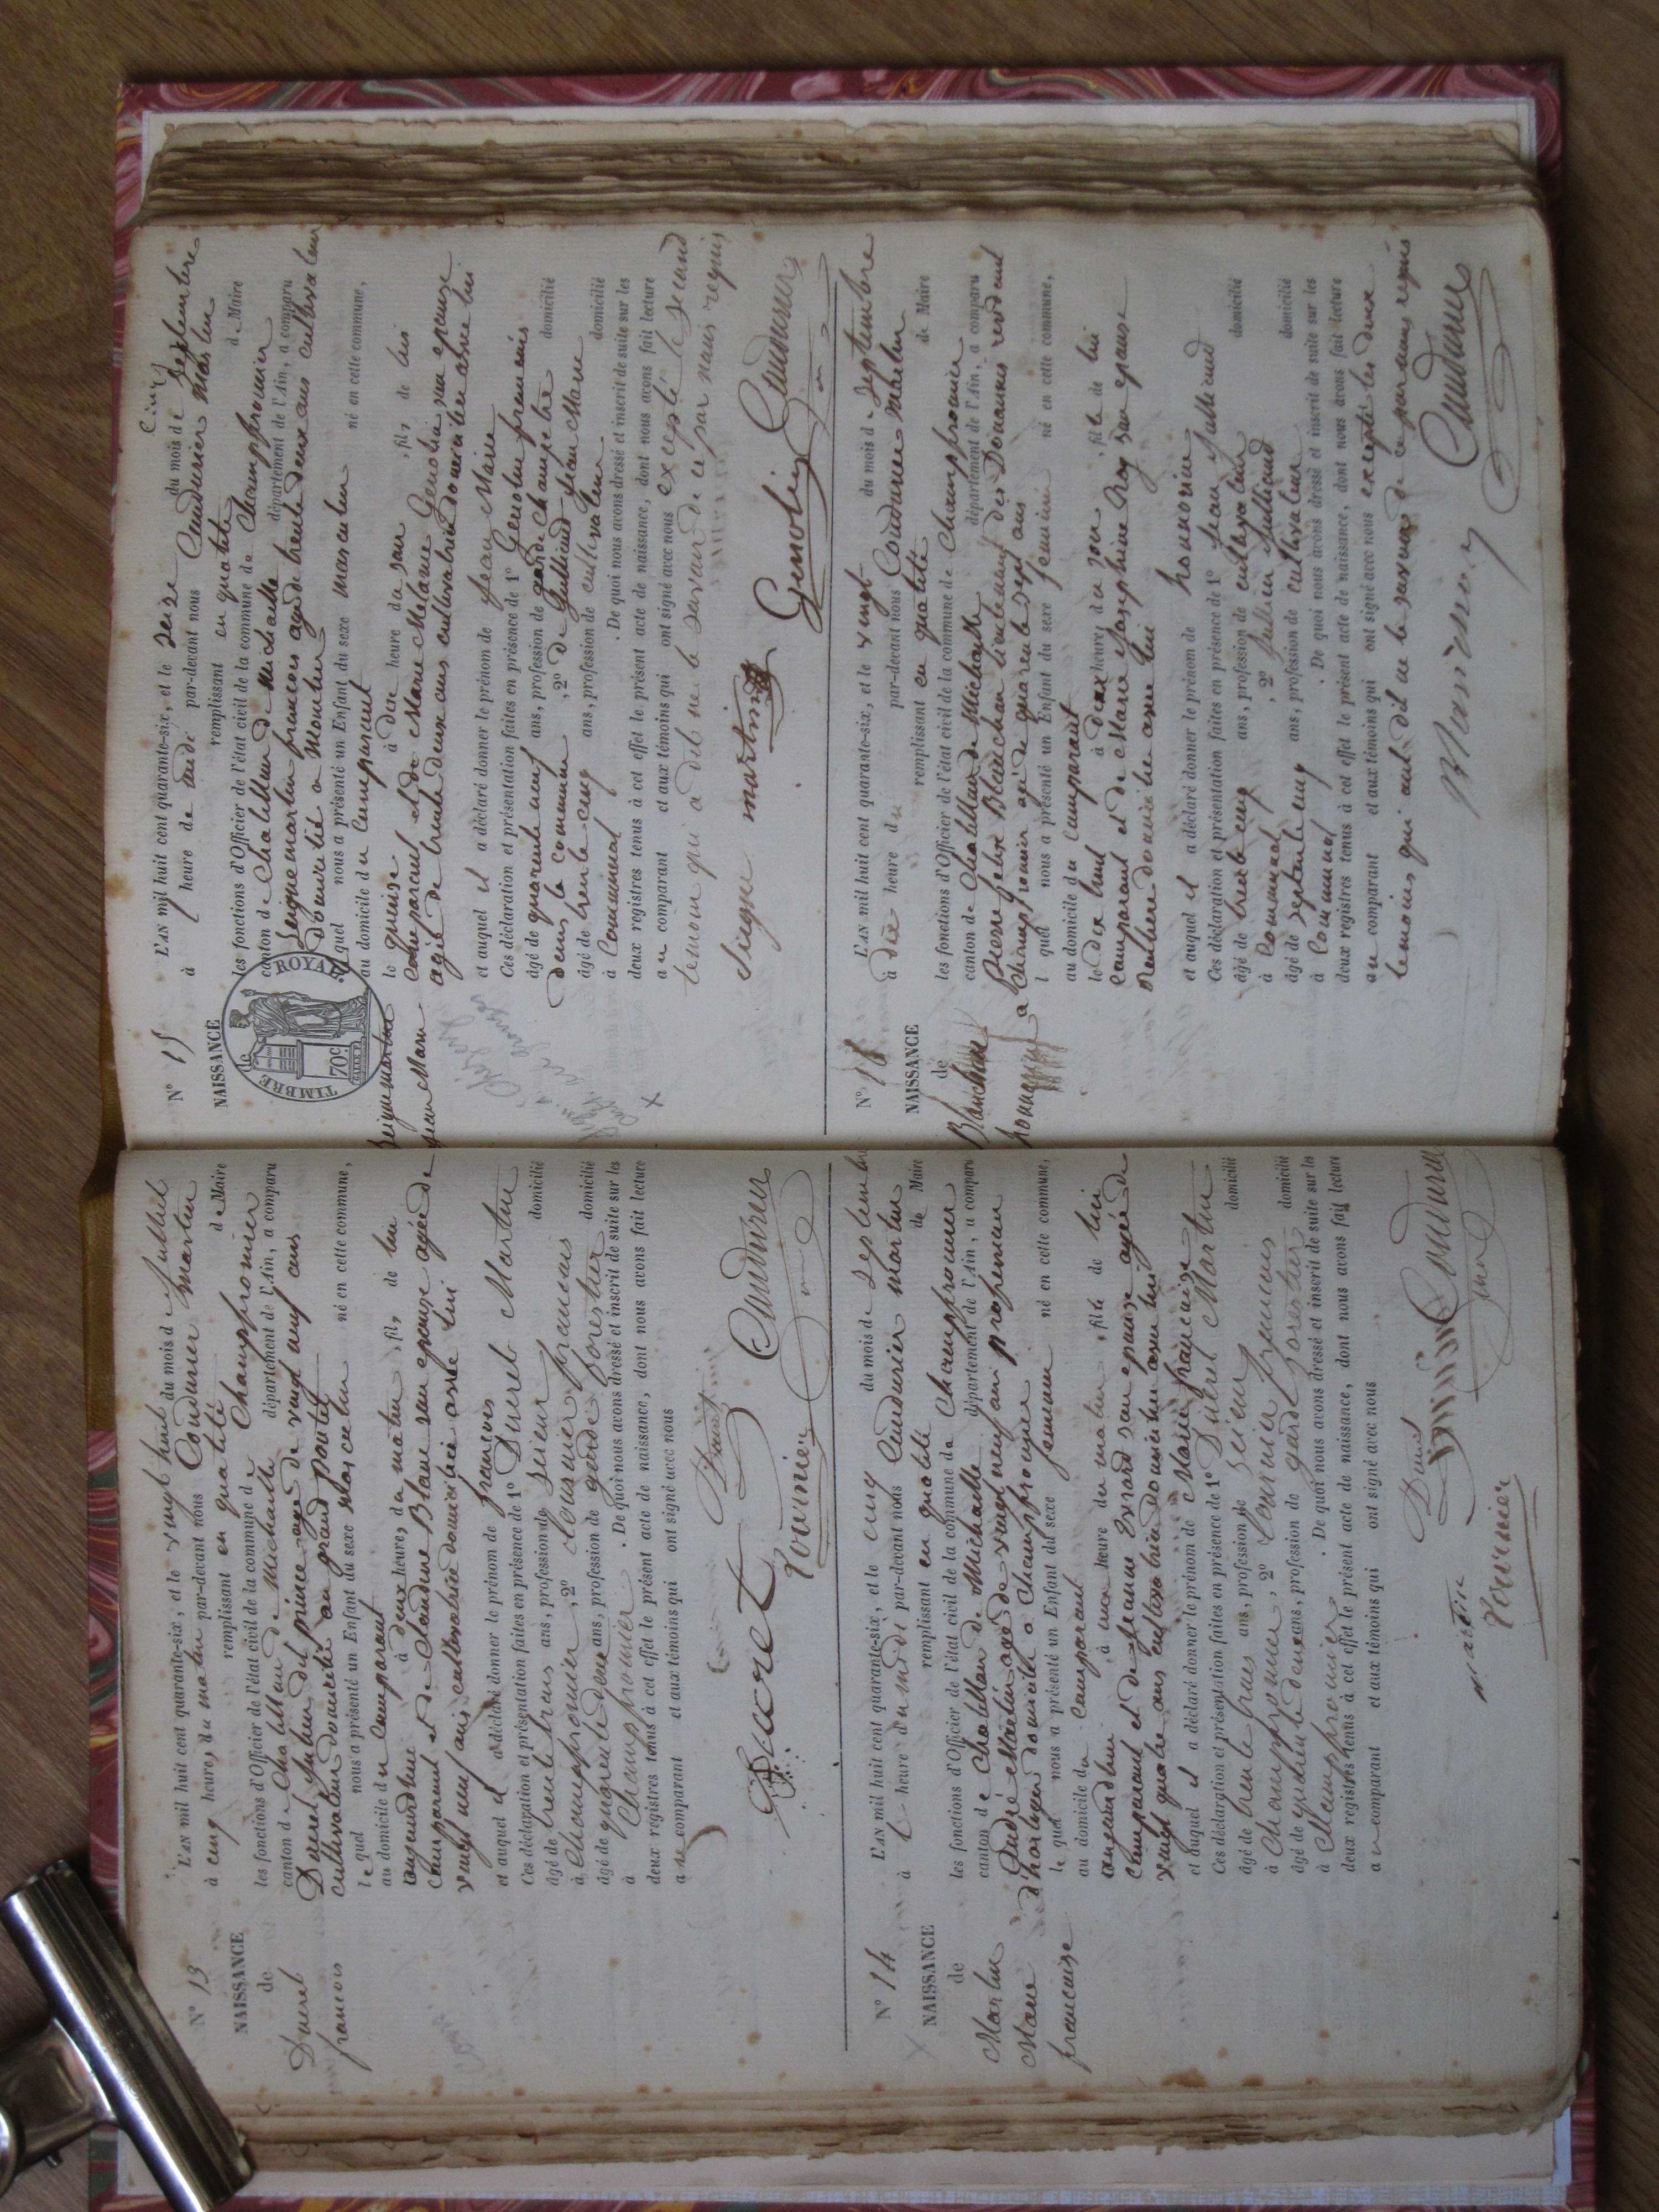 N° 13
NAISSANCE
de
Duret
francois
L'AN mil huit cent quarante-six, et le vingt huit du mois de Juillet
à cinq heures, du matin par-devant nous Coudurier martin
remplissant en qualité de Maire
les fonctions d'Officier de l'état civil de la commune de Champfromier
canton de Chatillon de Michaille département de l'Ain, a comparu
Duret Julien dit prince agé de vingt neuf ans
cultivateur domicilié au grand pontet
lequel nous a présenté un Enfant du sexe Masculin né en cette commune,
au domicile du Comparant
aujourdhui à deux heures, du matin, fils, de lui
Comparant et de Claudine Blanc son epouse agée de
vingt neuf ans cultivatrice domiciliée avec lui
et auquel il a déclaré donner le prénom de francois
Ces déclaration et présentation faites en présence de 1° Duret Martin
âgé de trente trois ans, profession de scieur domicilié
à Champfromier, 2° Tournier francois
âgé de quarente deux ans, profession de garde forestier domicilié
à Champfromier. De quoi nous avons dressé et inscrit de suite sur les
deux registres tenus à cet effet le présent acte de naissance, dont nous avons fait lecture
au comparant et aux témoins qui ont signé avec nous
Duret
Ducret Tournier Coudurier
N° 14
NAISSANCE
de
Martin
Marie
francoise
L'AN mil huit cent quarante-six, et le cinq du mois de Septembre
à heure du midi par-devant nous Coudurier martin
remplissant en qualité de Maire
les fonctions d'Officier de l'état civil de la commune de Champfromier
canton de Chatillon de Michaille département de l'Ain, a comparu
André Martin agé de vingt neuf ans profession
d'horloger domicilié a Champfromier
lequel nous a présenté un Enfant du sexe feminin né en cette commune,
au domicile du Comparant
aujourdhui à une heure du matin, fille de lui
Comparant et de Jeanne Evrard son epouse agée de
vingt quatre ans cultivatrice domiciliée avec lui
et auquel il a déclaré donner le prénom de Marie francoise
Ces déclaration et présentation faites en présence de 1° Duret Martin
âgé de trente trois ans, profession de scieur domicilié
à Champfromier, 2° Tournier francois
âgé de quarente deux ans, profession de garde forestier domicilié
à Champfromier. De quoi nous avons dressé et inscrit de suite sur les
deux registres tenus à cet effet le présent acte de naissance, dont nous avons fait lecture
au comparant et aux témoins qui ont signé avec nous
Duret Coudurier
martin
Tournier
N° 15
NAISSANCE
de
TIMBRE ROYAL
70c.
Seignemartin
Jean Marie
L'AN mil huit cent quarante-six, et le seize du mois de Septembre
à heure de midi par-devant nous Coudurier Martin
remplissant en qualité de Maire
les fonctions d'Officier de l'état civil de la commune de Champfromier
canton de Chatillon de Michaille département de l'Ain, a comparu
Seignemartin francois agé de trente deux ans cultivateur
domicilié a Monetier
lequel nous a présenté un Enfant du sexe masculin né en cette commune,
au domicile du Comparant
le quinze à dix heure du soir, fils, de lui
comparant et de Marie Melanie Genolin son epouse
agée de trente deux ans cultivatrice domiciliée avec lui
et auquel il a déclaré donner le prénom de Jean Marie
Ces déclaration et présentation faites en présence de 1° Genolin francois
âgé de quarente neuf ans, profession de garde champetre domicilié
dans la commune, 2° Jean Marie
âgé de trente cinq ans, profession de cultivateur domicilié
à Communal. De quoi nous avons dressé et inscrit de suite sur les
deux registres tenus à cet effet le présent acte de naissance, dont nous avons fait lecture
au comparant et aux témoins qui ont signé avec nous excepté le second
temoin qui a dit ne le savoir de ce par nous requis
Siegne martin Genolin Coudurier
N° 16
NAISSANCE
de
Blanchan
honnorine
L'AN mil huit cent quarante-six, et le vingt du mois de Septembre
à dix heure du par-devant nous Coudurier Martin
remplissant en qualité de Maire
les fonctions d'Officier de l'état civil de la commune de Champfromier
canton de Chatillon de Michaille département de l'Ain, a comparu
Pierre felix Blanchan lieutenant des Douannes residant
a Champfromier agé de quarente sept ans
lquel nous a présenté un Enfant du sexe feminin né en cette commune,
au domicile du Comparant
le dix huit à deux heures, du soir, fille de lui
Comparant et de Marie Josephine Roy son epouse
rentiere domiciliée avec lui
et auquel il a déclaré donner le prénom de honorine
Ces déclaration et présentation faites en présence de 1° Jean Julliand
âgé de trente cinq ans, profession de cultivateur domicilié
à Communal, 2° Jullien Julliand
âgé de septante cinq ans, profession de cultivateur domicilié
à Communal. De quoi nous avons dressé et inscrit de suite sur les
deux registres tenus à cet effet le présent acte de naissance, dont nous avons fait lecture
au comparant et aux témoins qui ont signé avec nous excepté les deux
temoins qui ont dit ne le savoir de ce par nous requis
Coudurier